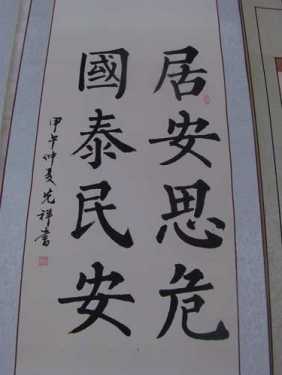 居安思危
國泰民安
甲午仲夏
祥書